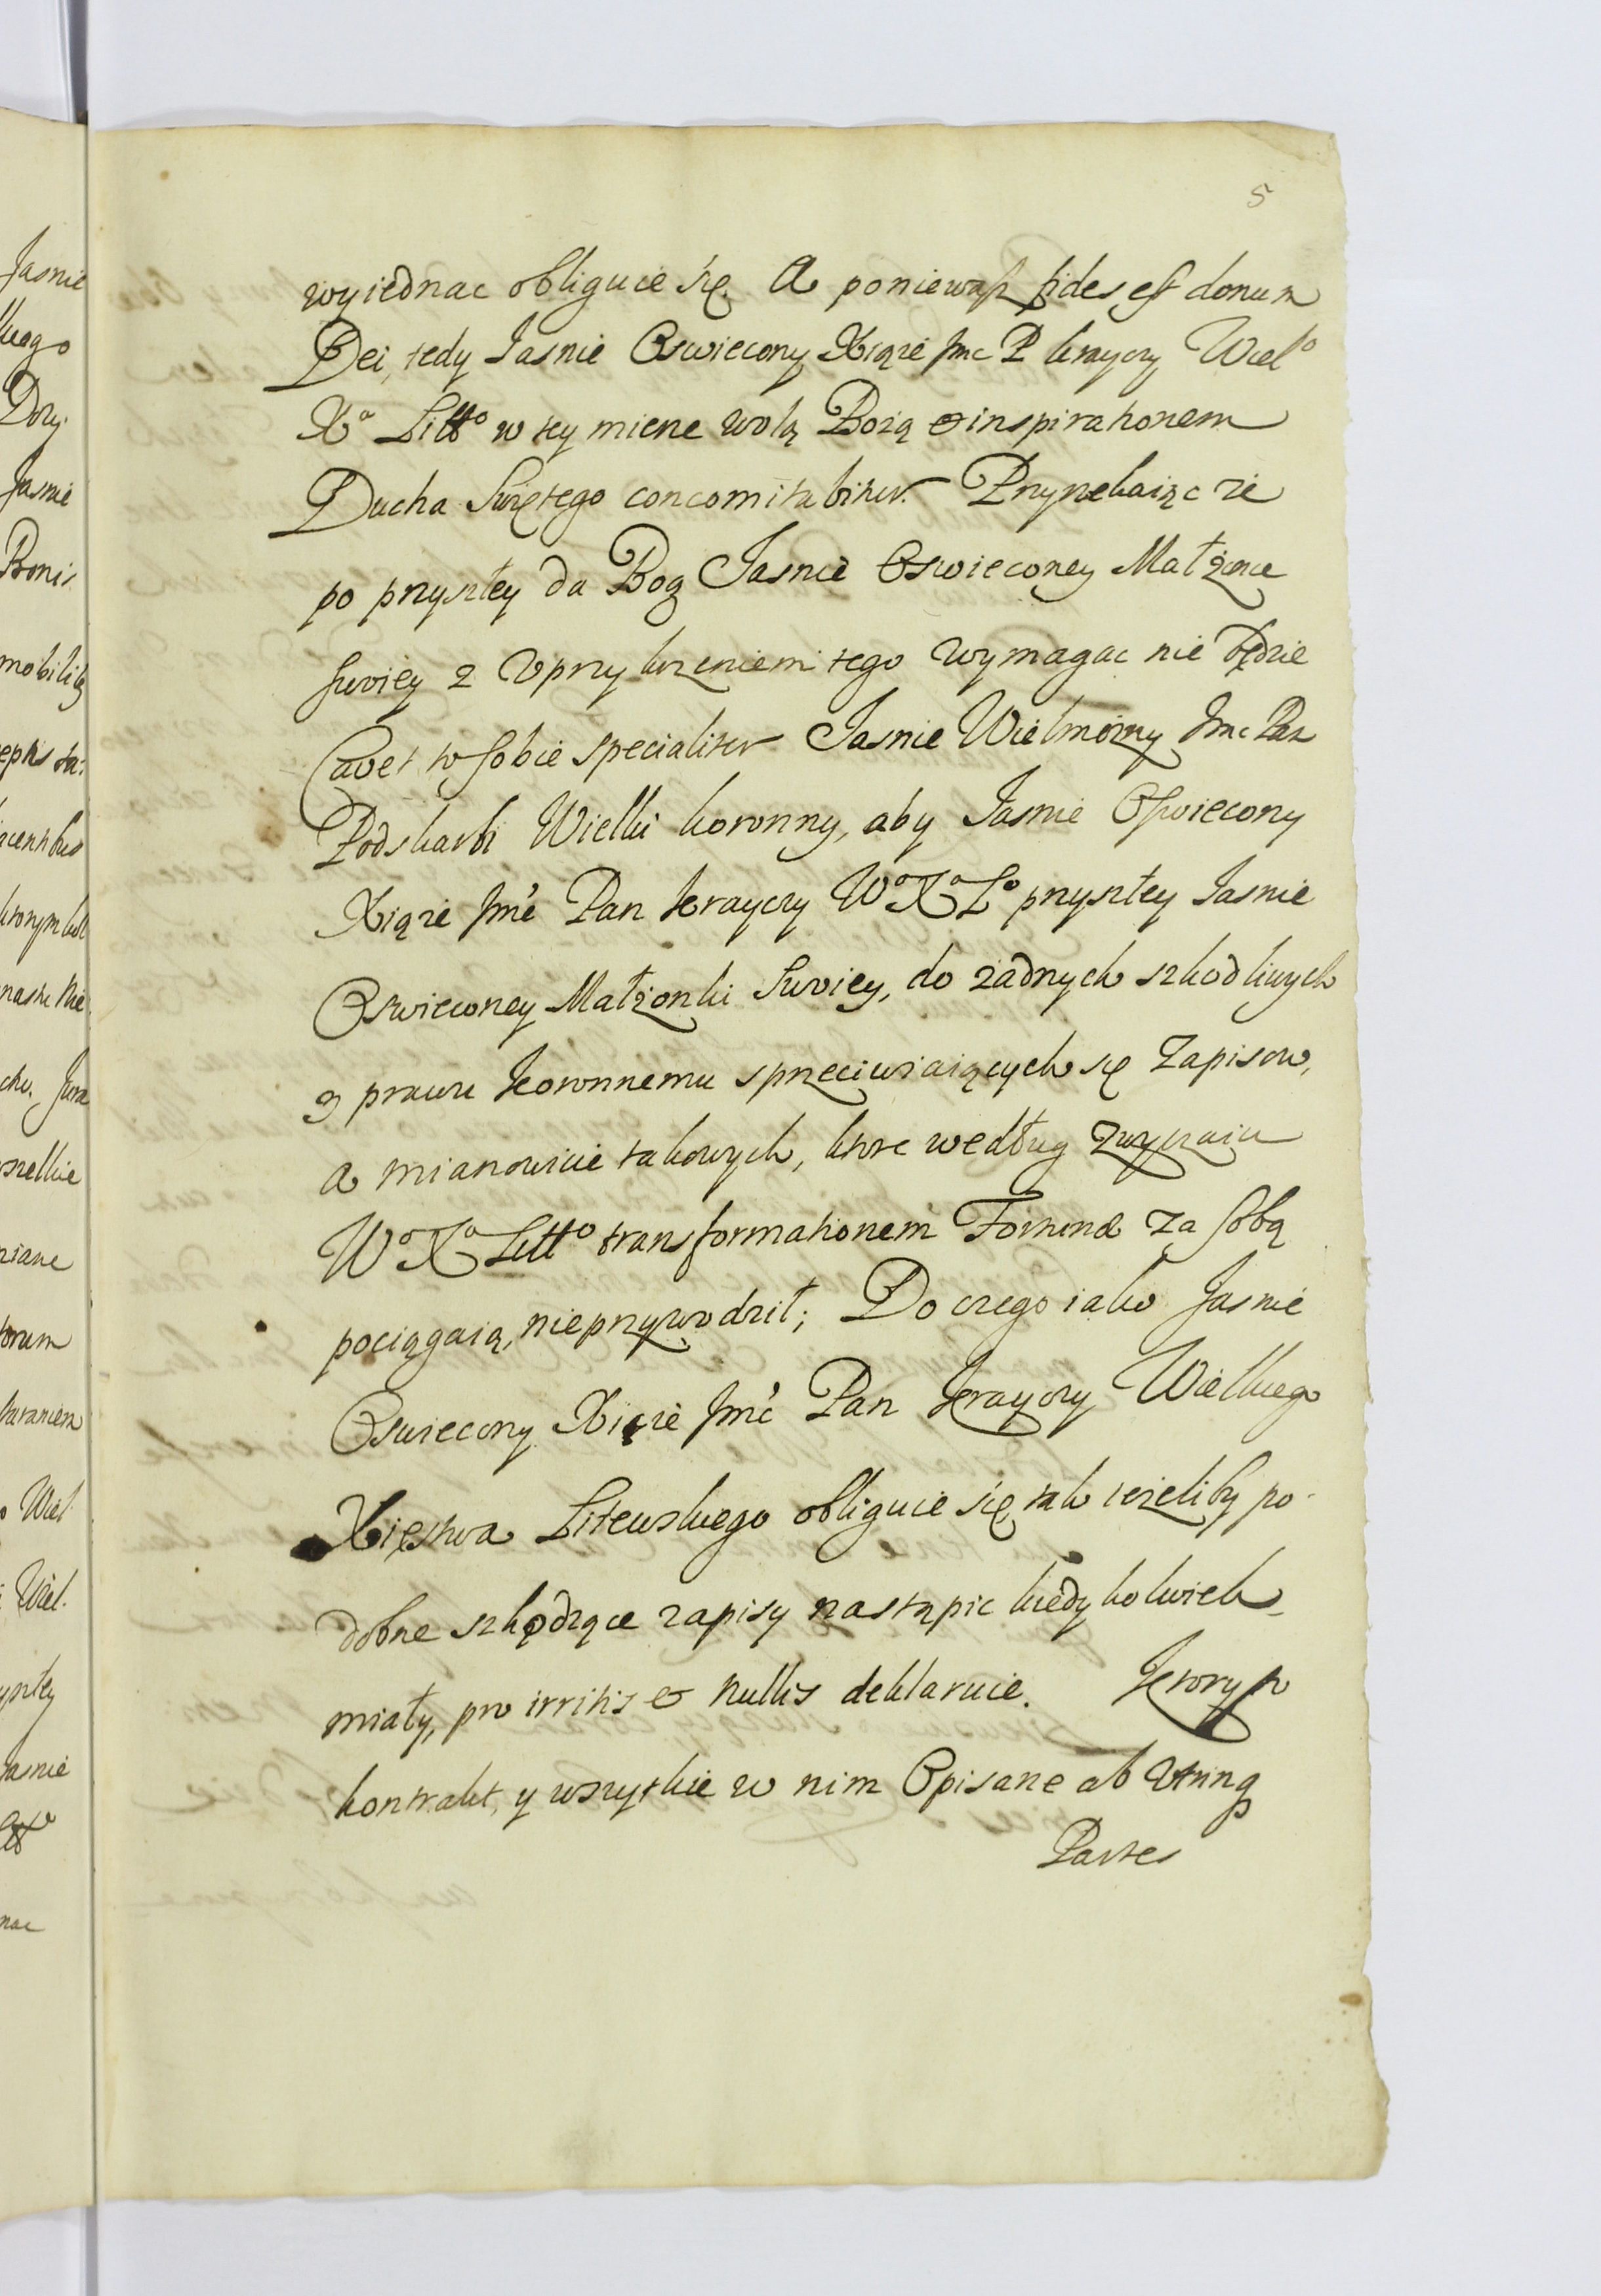 5
wyiednac obliguie się. A poniewasz fides est donum
Dei, tedy Jasnie Oswiecony Xiąże Jmc P krayczy Wielo
Xo Litto w tey mierze wolą Bożą et inspirationem
Ducha Swiętego concomitabitur. Przyrzekaiąc że
po przyszłey da Bog Jasnie Oswieconey Małżonce
swoiey z Uprzykrzeniem tego wymagac nie będzie
Cavet to sobie specialiter Jasnie Wielmożny Jmc Pan
Podskarbi Wielki koronny, aby Jasnie Oswiecony
Xiąże Jmć Pan Krayczy Wo Xo Lo przyszłey Jasnie
Oswieconey Małżonki Swoiey, do żadnych szkodliwych
y prawu Koronnemu sprzeciwiaiących się Zapisow,
a mianowicie takowych, ktore według Zwyczaiu
Wo Xo Litto transformationem Fortunæ za sobą
pociągaią, nieprzywodził; Do czego iako Jasnie
Oswiecony Xiąże Jmć Pan Krayczy Wielkiego
Xięstwa Litewskiego obliguie się, tak ieżeliby po-
dobne szkodzące zapisy nastąpic kiedykolwiek
miały, pro irritis et nullis deklaruie. Ktory to
kontrakt, y wszytkie w nim Opisane ab utrinq
Partes